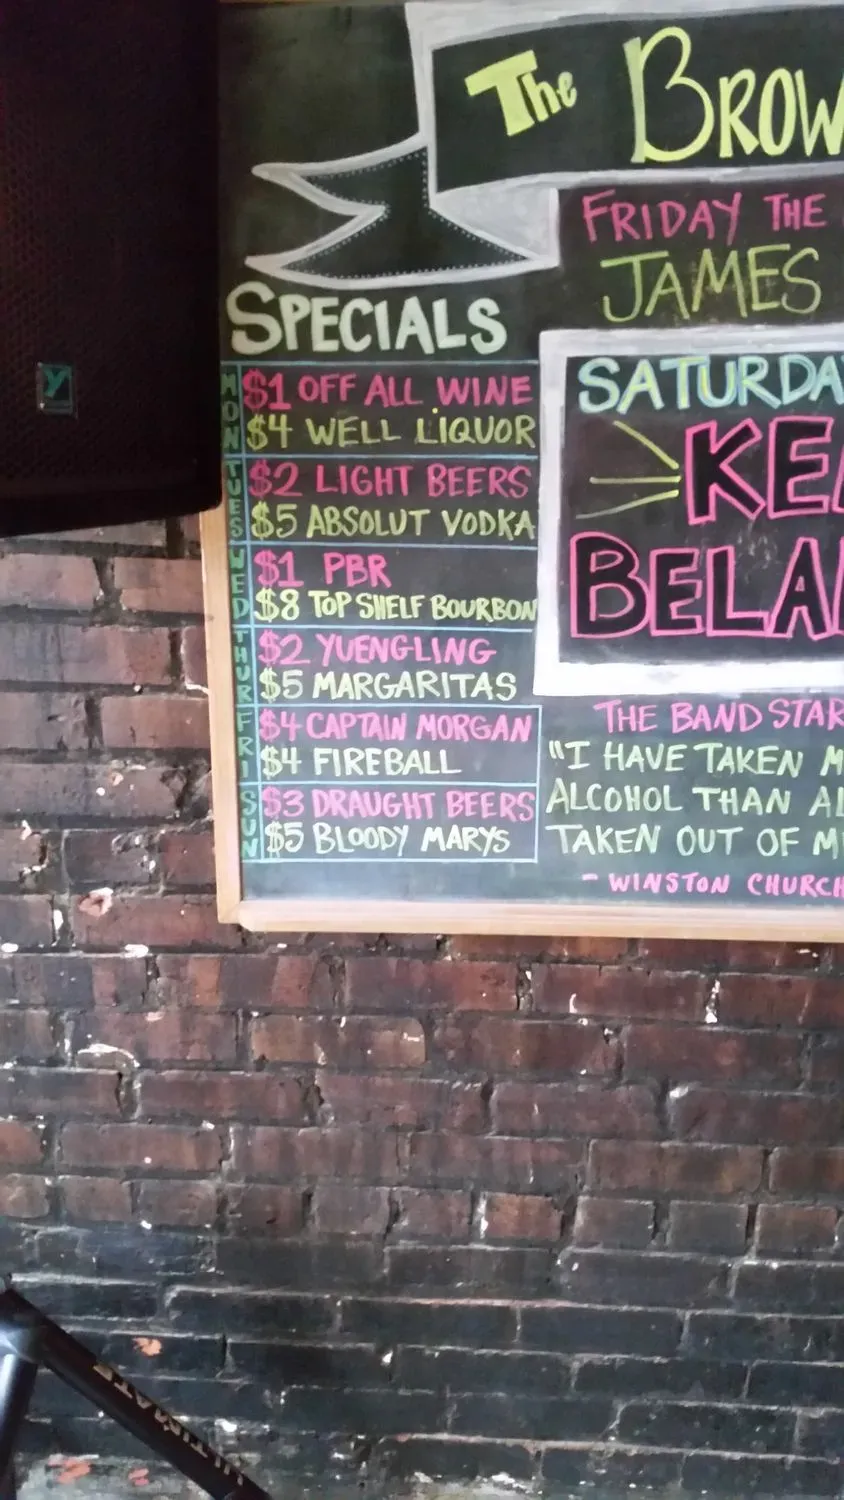 The BROW
FRIDAY THE
JAMES
SPECIALS
MON
$1 OFF ALL WINE
$4 WELL LIQUOR
TUES
$2 LIGHT BEERS
$5 ABSOLUT VODKA
WED
$1 PBR
$8 TOP SHELF BOURBON
THUR
$2 YUENGLING
$5 MARGARITAS
FRI
$4 CAPTAIN MORGAN
$4 FIREBALL
SUN
$3 DRAUGHT BEERS
$5 BLOODY MARYS
SATURDA
KE
BELA
THE BAND STAR
"I HAVE TAKEN M
ALCOHOL THAN AL
TAKEN OUT OF M
- WINSTON CHURCH
Y
ULTIMATE